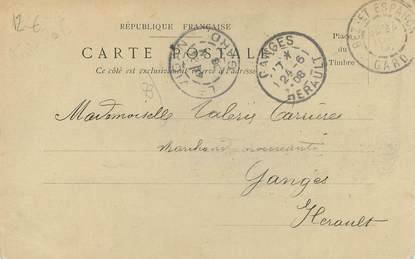 12 €
RÉPUBLIQUE FRANÇAISE
CARTE POSTALE
Ce côté est exclusivement réservé à l'adresse
Place du Timbre
LE VIGAN GARD
GANGES 7 * 24 -6 08 HERAULT
BEZ-ET-ESPARON GARD
Mademoiselle Valerie Carrières
Marchand
Ganges
Herault